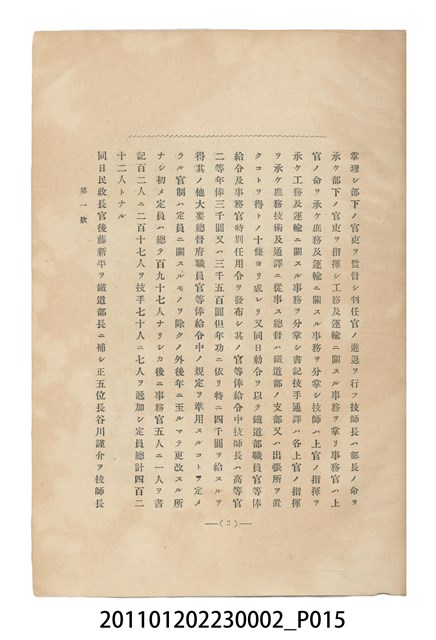 掌理シ部下ノ官吏ヲ監督シ判任官ノ進退ヲ行フ技師長ハ部長ノ命ヲ
承ケ部下ノ官吏ヲ指揮シ工務及運輸ニ關スル事務ヲ掌リ事務官ハ上
官ノ命ヲ承ケ庶務及運輸ニ關スル事務ヲ分掌シ技師ハ上官ノ指揮ヲ
承ケ工務及運輸ニ關スル事務ヲ分掌シ書記技手通譯ハ各上官ノ指揮
ヲ承ケ庶務技術及通譯ニ從事ス總督ハ鐵道部ノ支部又ハ出張所ヲ置
クコトヲ得トノ十條ヨリ成レリ又同日勅令ヲ以テ鐵道部職員官等俸
給令及事務官特別任用令ヲ發布シ其ノ官等俸給令中技師長ハ高等官
二等年俸三千圓又ハ三千五百圓但年功ニ依リ特ニ四千圓ヲ給スルヲ
得其ノ他大要總督府職員官等俸給令中ノ規定ヲ準用スルコトヲ定メ
ラル官制ハ定員ニ關スルモノヲ除クノ外後年ニ至ルマテ更改スル所
ナシ初メ定員ハ總テ百九十七人ナリシカ後ニ事務官五人ニ一人ヲ書
記百二人ニ二百十七人ヲ技手七十人ニ七人ヲ遞加シ定員總計四百二
十二人トナル
同日民政長官後藤新平ヲ鐵道部長ニ補シ正五位長谷川謹介ヲ技師長
第一款
—(3)—
201101202230002_P015